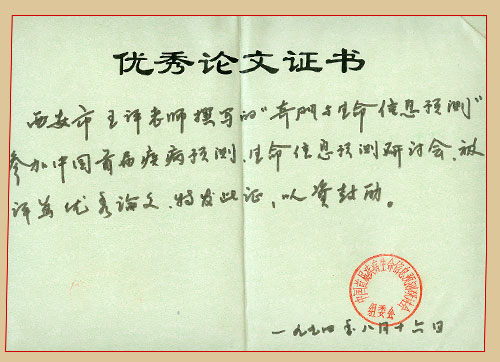 优秀论文证书
西安市王评老师撰写的“奇门与生命信息预测”
参加中国首届疾病预测、生命信息预测研讨会，被
评为优秀论文、特发此证，以资鼓励。
中国首届疾病生命信息预测研讨会
组委会
一九九四年八月十六日